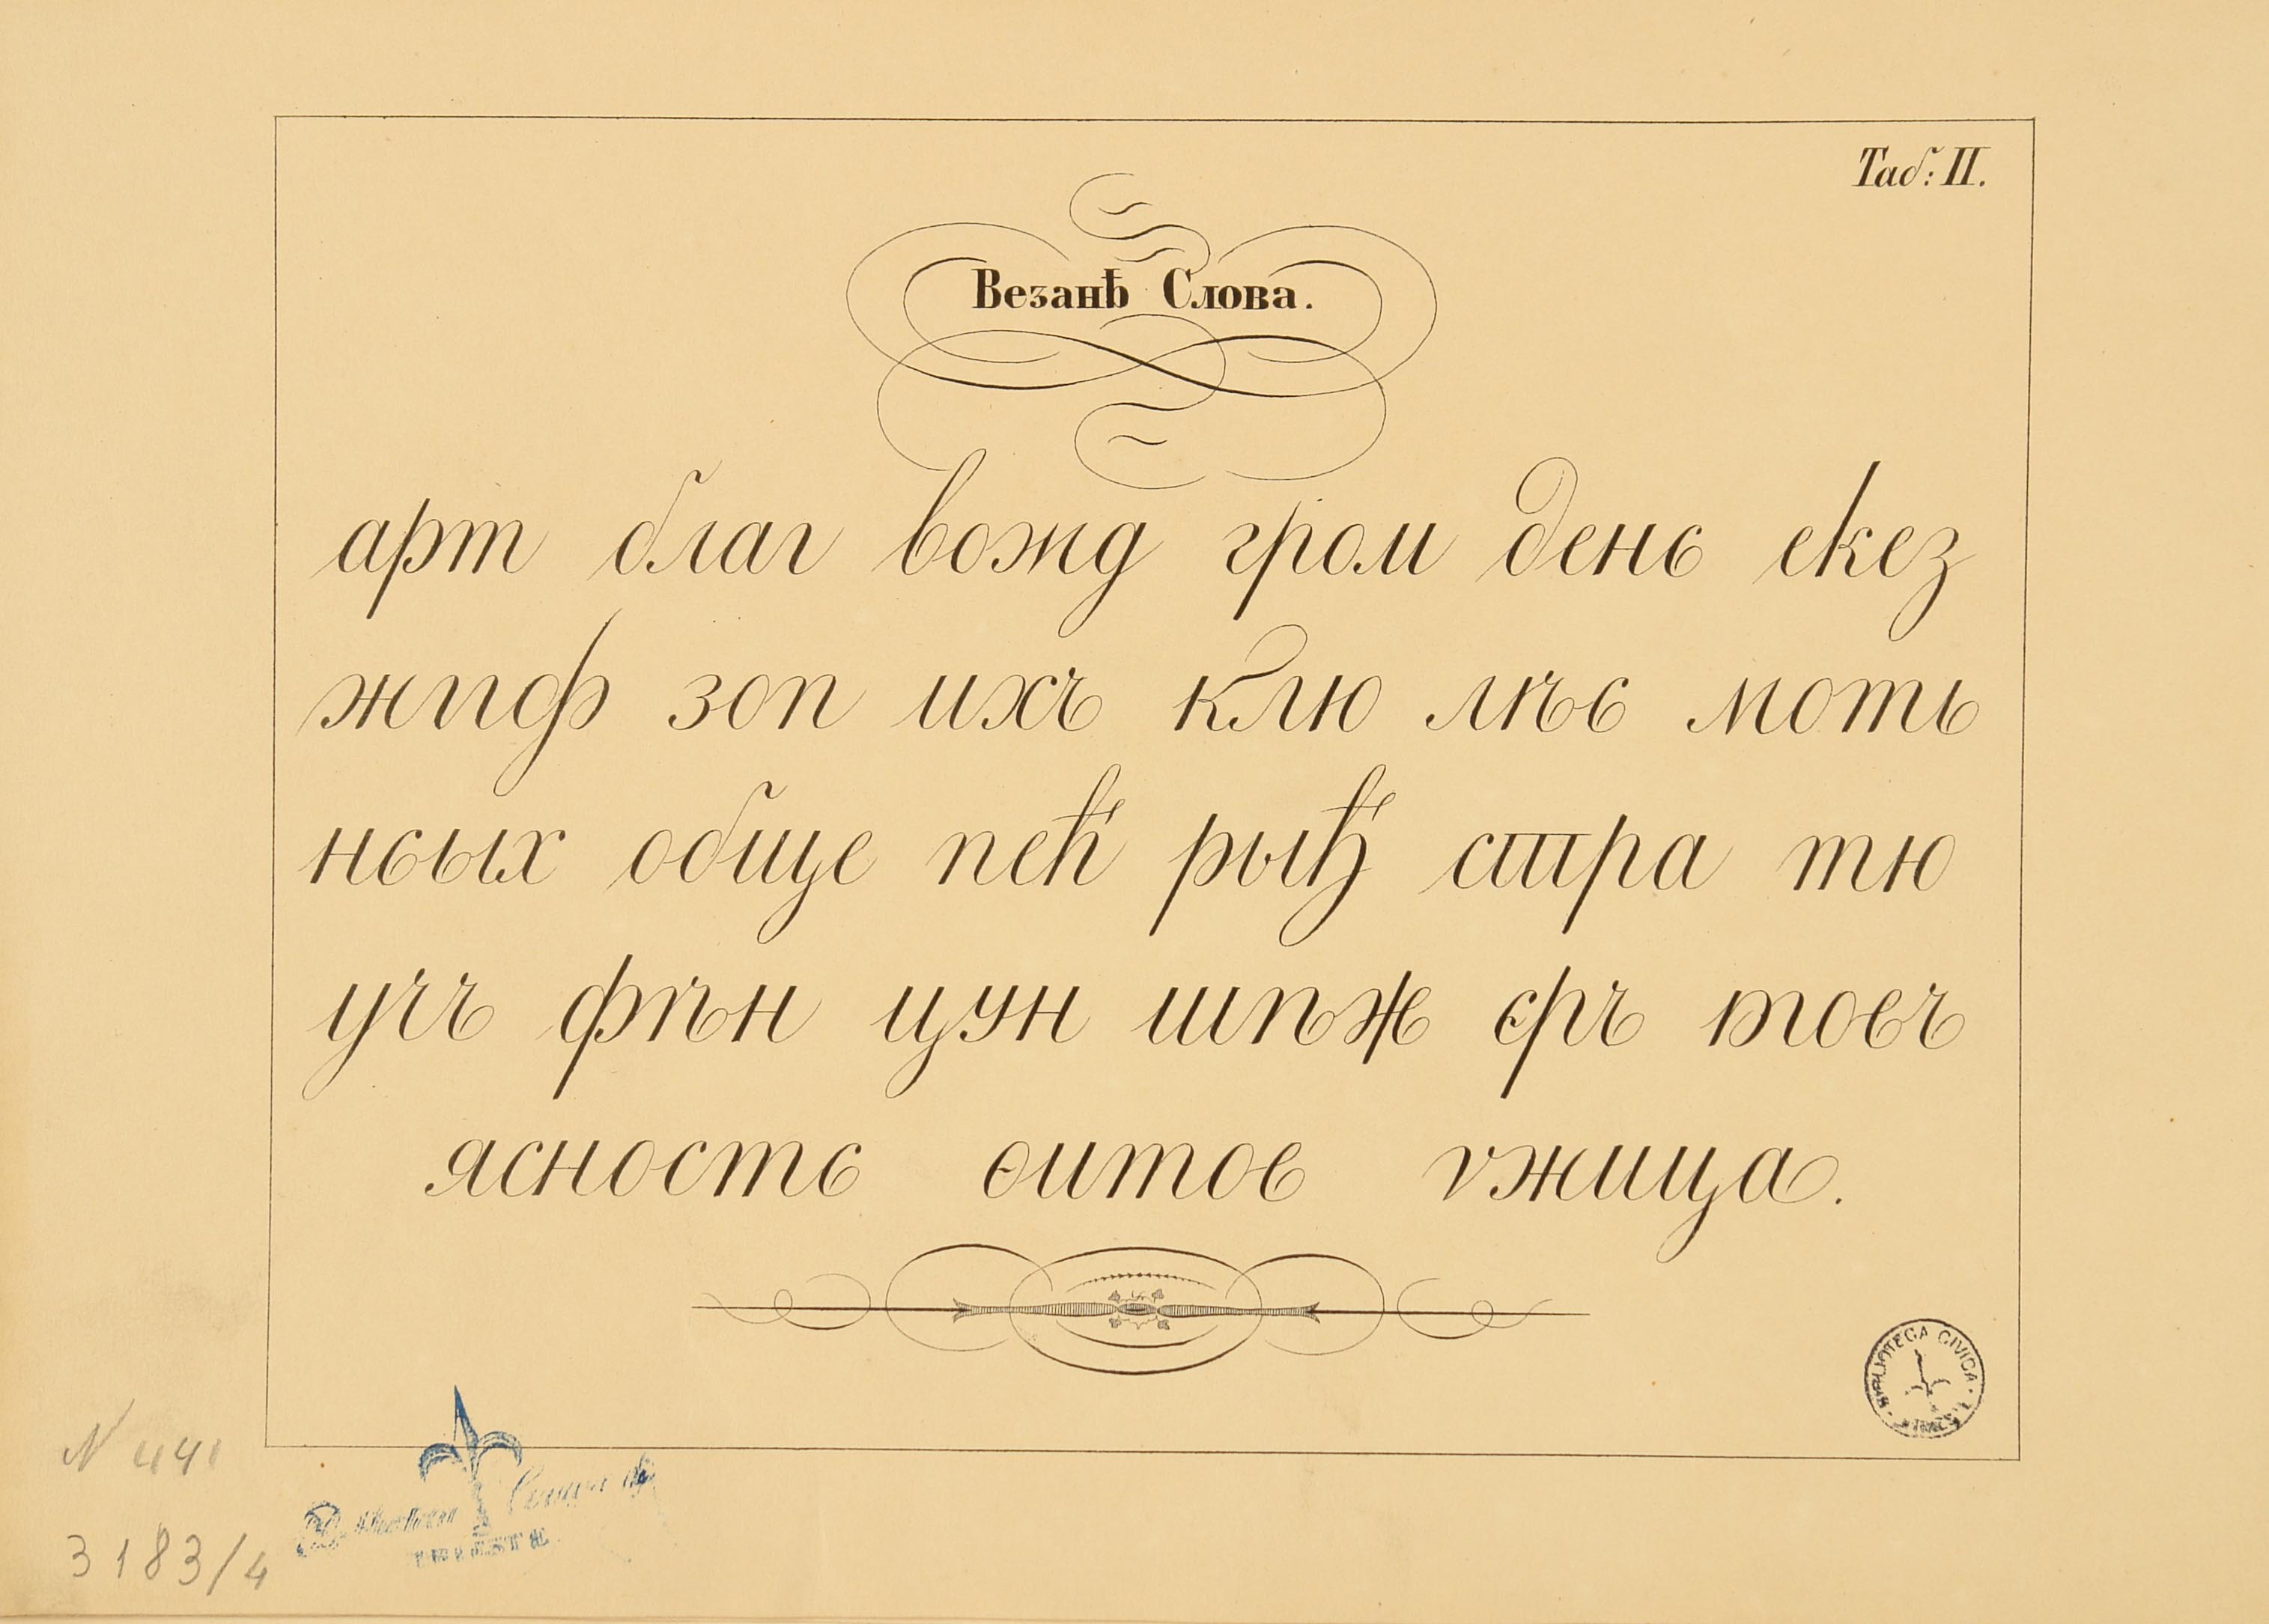 Таб: II.
Везанѣ Слова.
арт благ вожд гром день екез
жиф зоп ихъ клю лѣс моть
нсых обще пећ рыђ стра тю
учъ фѣн цун шпж єръ тоеъ
ясность ѳитов ѵжица.
BIBLIOTECA CIVICA
TRIESTE
N 441
3183/4